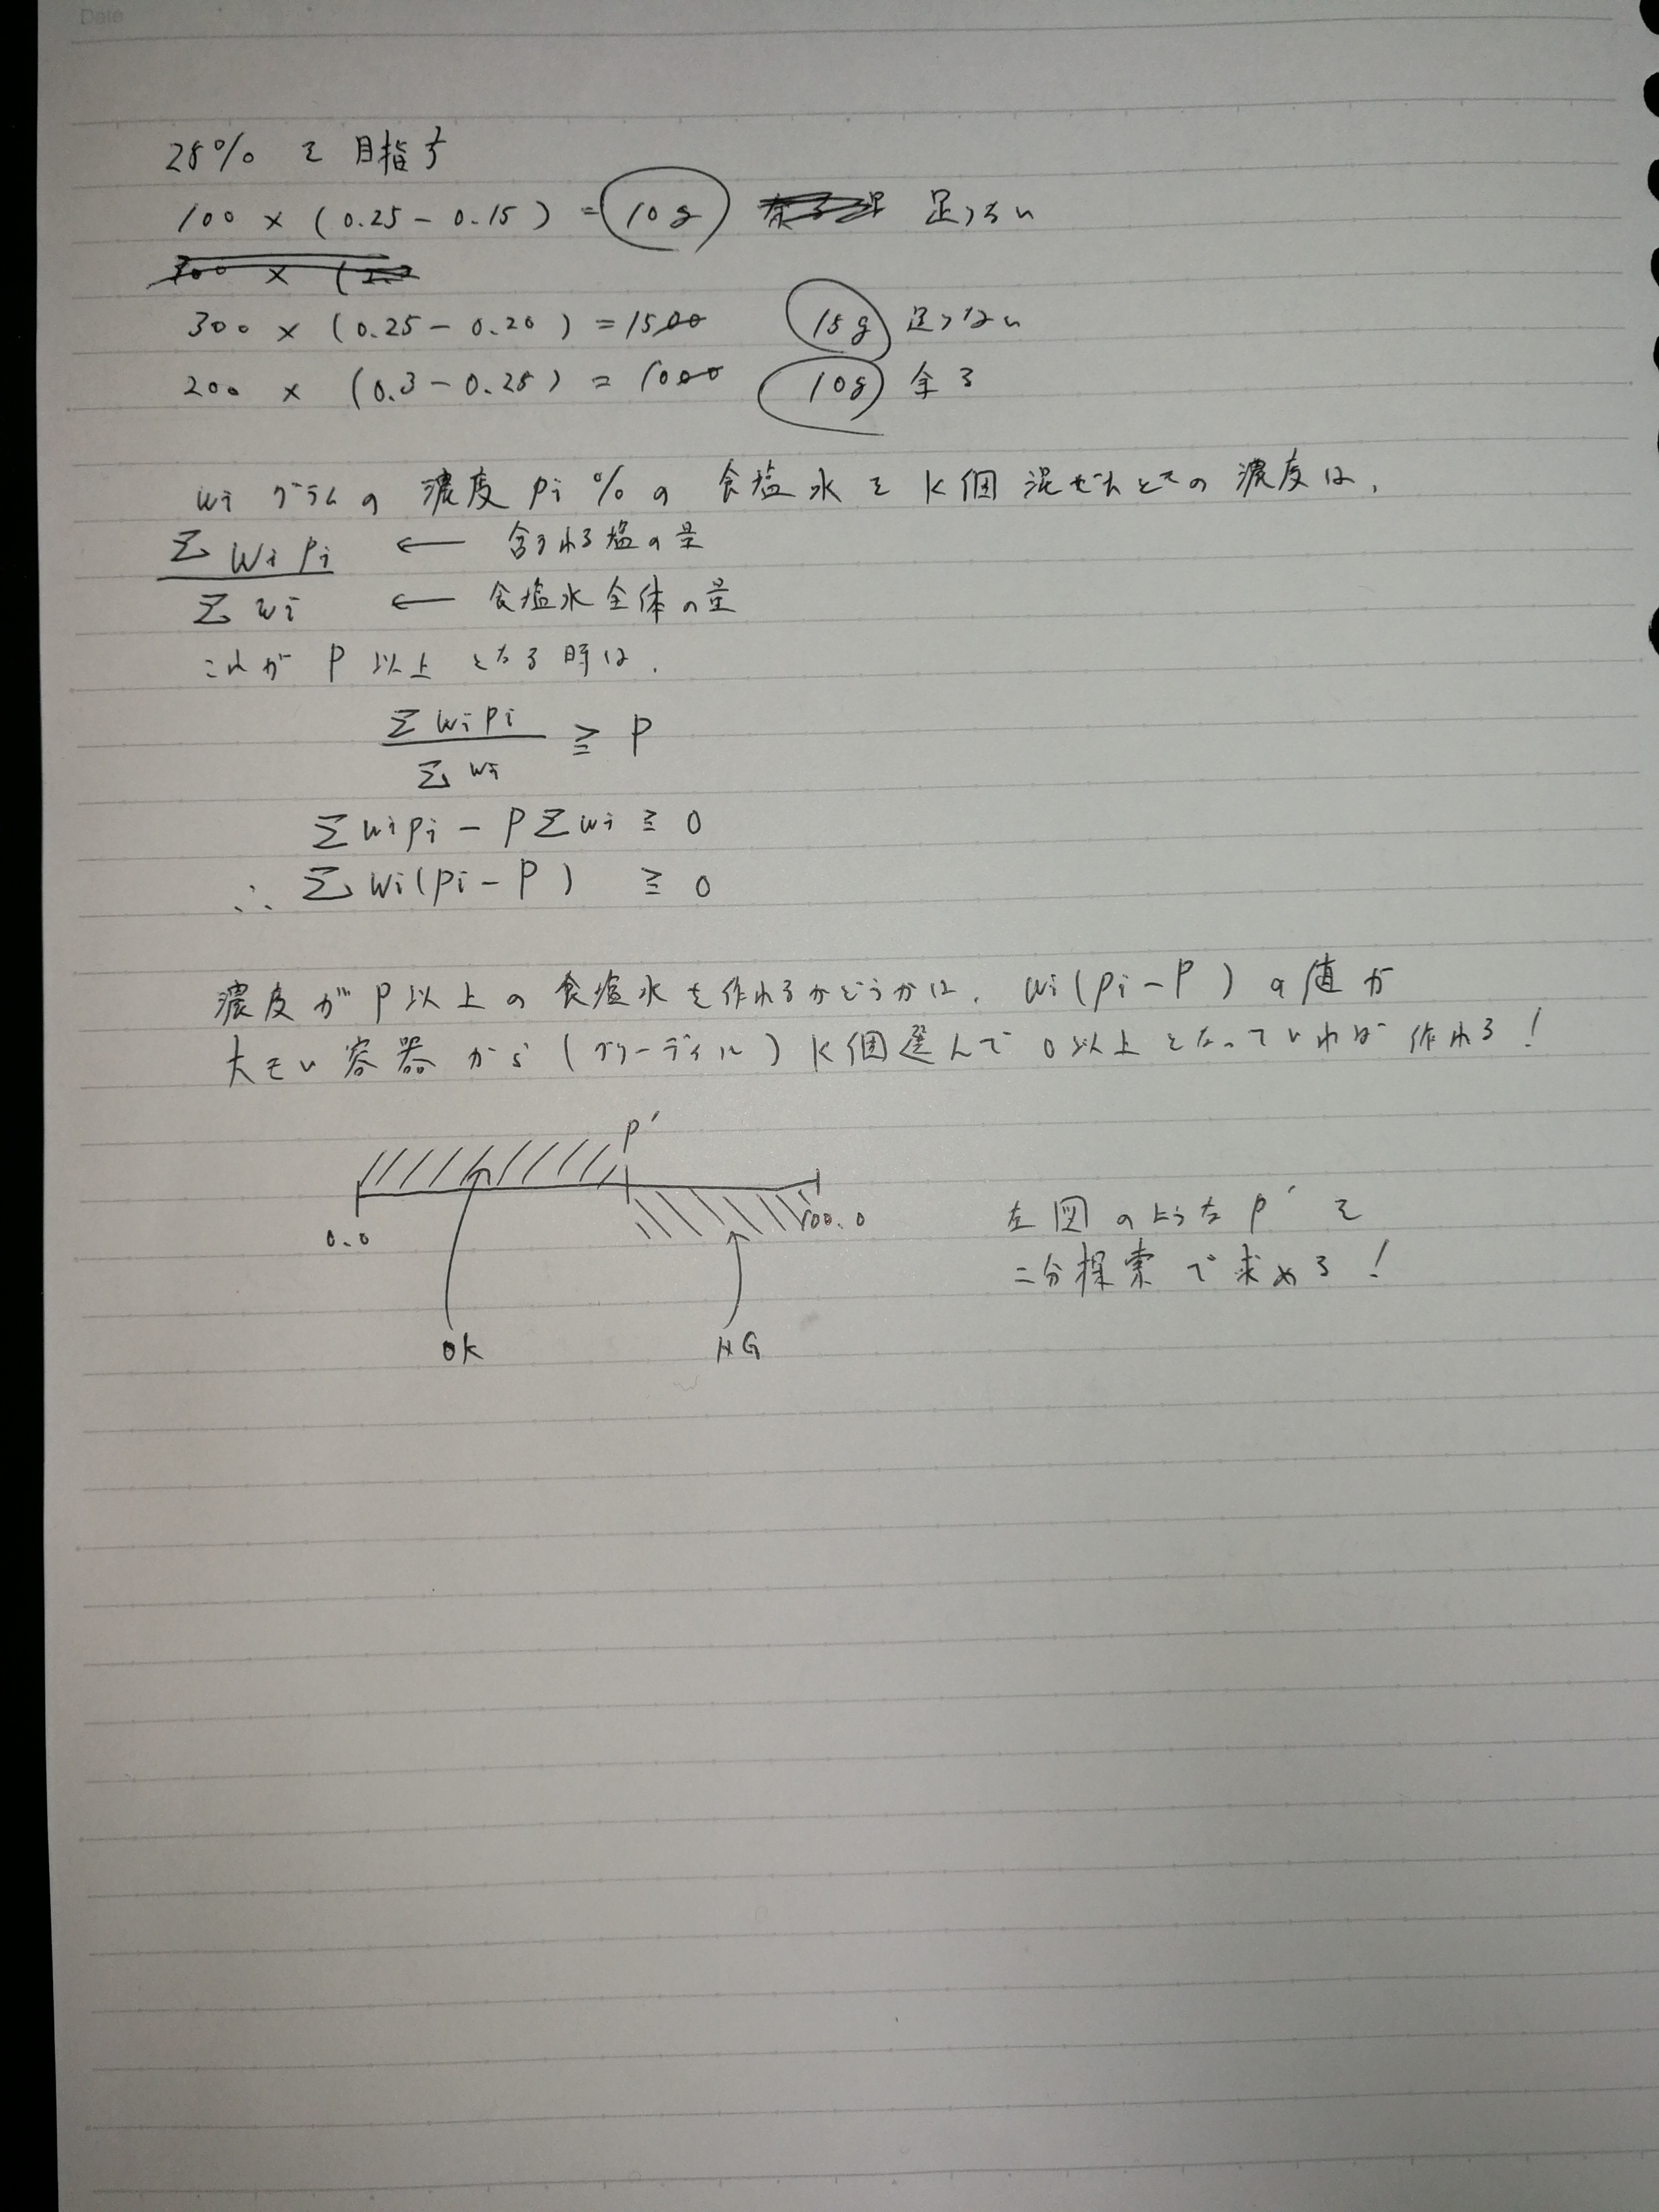 Date
25% を目指す
100 × (0.25 - 0.15) = 10g 足りない
300 × (
300 × (0.25 - 0.20) = 1500 15g 足りない
200 × (0.3 - 0.25) = 1000 10g 余る
wi グラムの 濃度 pi % の 食塩水を K個 混ぜたときの 濃度は,
Σ wi pi ← 含まれる塩の量
Σ wi ← 食塩水全体の量
これが P 以上 となる時は,
Σ wi pi
≧ P
Σ wi
Σ wi pi - P Σ wi ≧ 0
∴ Σ wi (pi - P) ≧ 0
濃度が P以上の 食塩水を作れるかどうかは, wi (pi - P) の値が
大きい容器から (グリーディに) K個選んで 0以上となっていれば 作れる!
P'
0.0 100.0
左図のような P' を
二分探索で求める!
OK NG